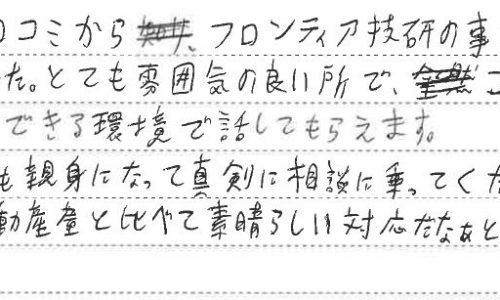 コミから フロンティア技研の事
た。とても雰囲気の良い所で、
できる環境で話してもらえます。
も親身になって真剣に相談に乗ってくた
動産屋と比べて素晴らしい対応だなぁと